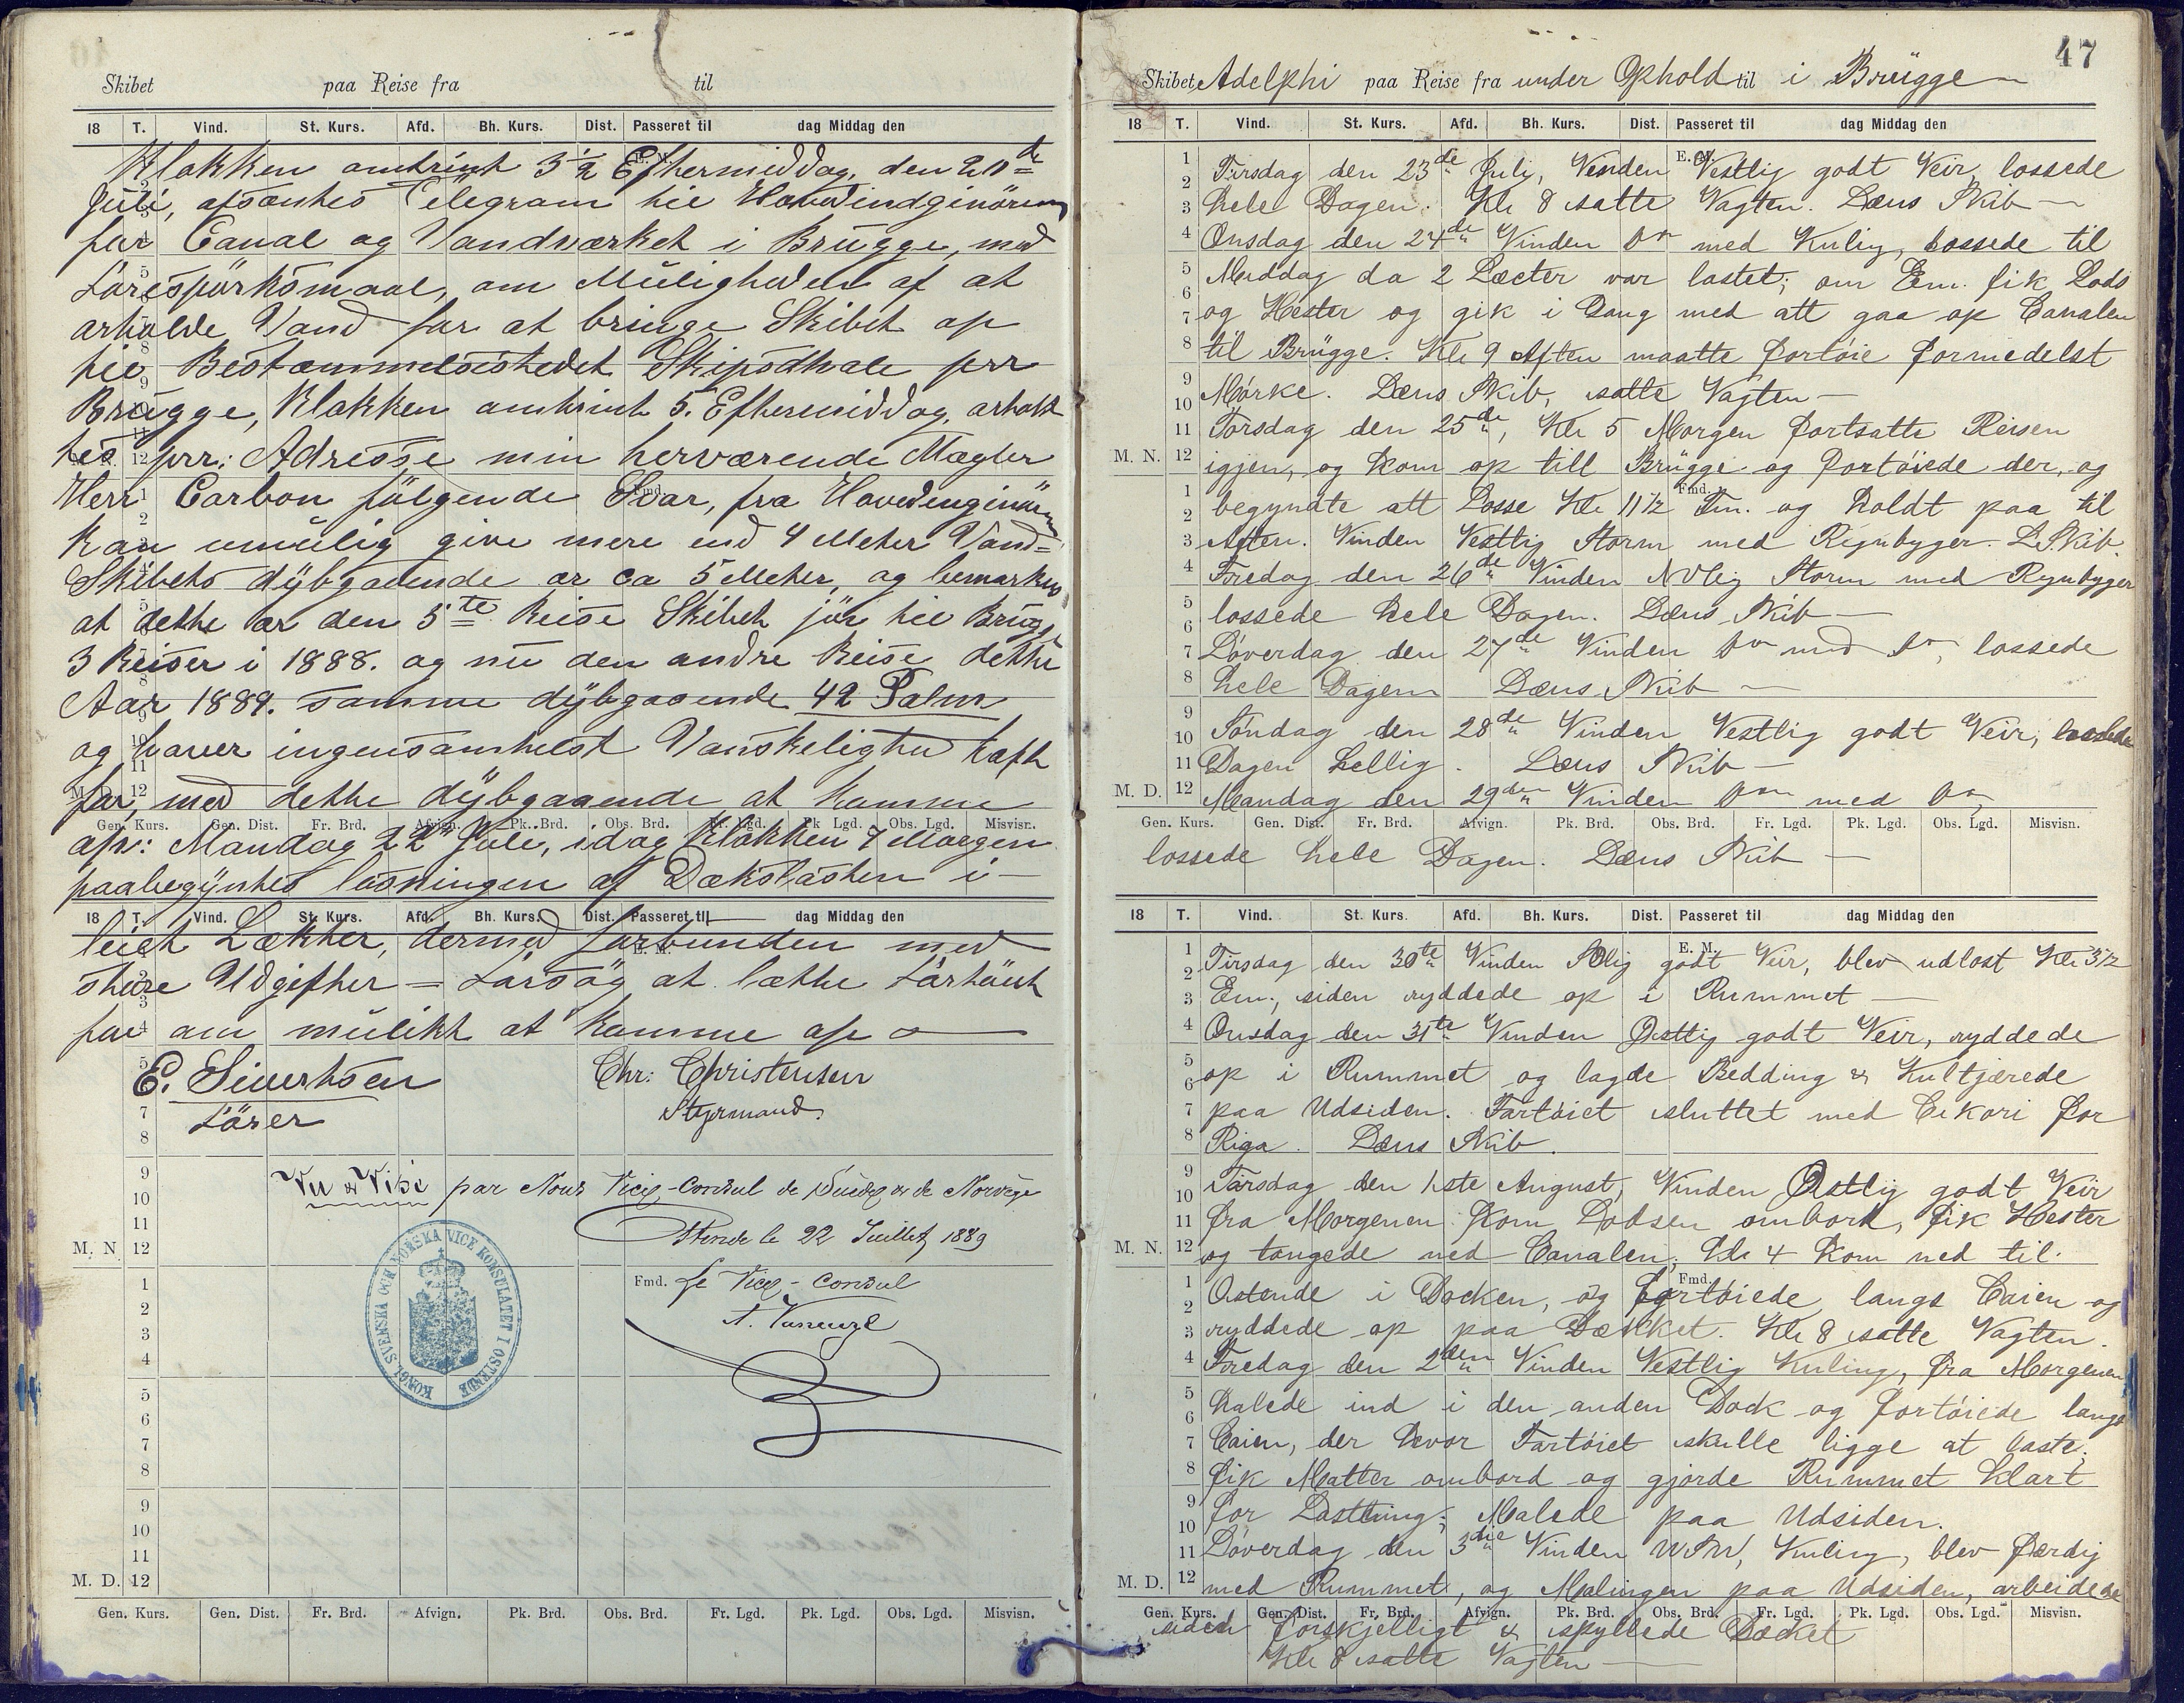 Skibet paa Reise fra til
18 T. Vind. St. Kurs. Afd. Bh. Kurs. Dist. Passeret til dag Middag den
Klokken omtrint 3 1/2 Efthermiddag. den 20de
Juli, afsenhes Telegram hil Hovedindginören
for Canal og Vandværket i Brügge, med
Förespörksmaal, om Muligheden af at
erholde Vand for at bringe Skibet op
hil Bestæmmelsestedet Skipsdhale prr
Brügge, Klokken omtrint 5. Efthermiddag, erholt
hes prr: Adresse min herværende Mægler
Herr Carbon fölgende Svar, fra Hovedenginören
Kan umulig give mere end 4 Meher Vand=
Skibets dÿbgaaende er ca 5 Meher, og bemærkes
at dethe er den 5te Reise Skibeh jör hil Brügge
3 Reiser i 1888. og nu den andre Reise dethe
Aar 1889. samme dÿbgaaende 42 Palm
og haver ingensomhelst Vanskelighed hafh
for, med dethe dÿbgaaende at komme
M. D. 12
Gen. Kurs. Gen. Dist. Fr. Brd. Afvign. Pk. Brd. Obs. Brd. Fr. Lgd. Pk. Lgd. Obs. Lgd. Misvisn.
op: Mandag 22de Juli, idag Klokken 7 Morgen
paabegÿnhes lösningen af Dækslasten i
18 T. Vind. St. Kurs. Afd. Bh. Kurs. Dist. Passeret til dag Middag den
leieh Lækher, dermed forbunden med
shore Udgifther — Försög at læthe Förhöieh
for om mulikh at komme op
E. Siverhsen Chr: Christensen
Förer Styrmand.
Vu & Visé par Nous Vice-Consul de Suède & de Norvège
Ostende le 22 Juillet 1889
M. N. 12
Fmd. Le Vice-Consul
KONGL. SVENSKA OCH NORSKA VICE KONSULATET I OSTENDE
M. D. 12
Gen. Kurs. Gen. Dist. Fr. Brd. Afvign. Pk. Brd. Obs. Brd. Fr. Lgd. Pk. Lgd. Obs. Lgd. Misvisn.
47
Skibet Adelphi paa Reise fra under Ophold til i Brügge
18 T. Vind. St. Kurs. Afd. Bh. Kurs. Dist. Passeret til dag Middag den
E. M.
Tirsdag den 23de July, Vinden Vestlig godt Veir, lossede
hele Dagen. Kl 8 satte Vagten. Læns Skib
Onsdag den 24de Vinden Do med Kulig, lossede til
Middag da 2 Lecter var lastet; om Em. fik Lods
og Hester og gik i Gang med att gaa op Canalen
til Brügge. Kl 9 Aften maatte fortøie formedelst
Mørke. Læns Skib, satte Vagten
Torsdag den 25de, Kl 5 Morgen fortsatte Reisen
M. N. 12 igjen, og kom op till Brügge og fortøiede der, og
Fmd.
begyndte att Losse Kl 11 1/2 Fm. og holdt paa til
Aften. Vinden Vestlig Storm med Regnbyger. L. Skib.
Fredag den 26de Vinden NVlig Storm med Regnbyger
lossede hele Dagen. Læns Skib
Løverdag den 27de Vinden Do med Do, lossede
hele Dagen Læns Skib
Søndag den 28de Vinden Vestlig godt Veir,
Dagen hellig. Læns Skib
M. D. 12 Mandag den 29den Vinden Do med Do,
Gen. Kurs. Gen. Dist. Fr. Brd. Afvign. Pk. Brd. Obs. Brd. Fr. Lgd. Pk. Lgd. Obs. Lgd. Misvisn.
lossede hele Dagen. Læns Skib
18 T. Vind. St. Kurs. Afd. Bh. Kurs. Dist. Passeret til dag Middag den
E. M.
Tirsdag den 30te Vinden SOlig godt Veir, blev udlost Kl 3 1/2
Em., siden ryddede op i Rummet
Onsdag den 31te Vinden Østlig godt Veir, ryddede
op i Rummet og lagde Bedding & Kultjærede
paa Udsiden. Fartøiet sluttet med Cikori for
Riga. Læns Skib.
Torsdag den 1ste August, Vinden Østlig godt Veir
fra Morgenen kom Lodsen ombord, fik Hester
M. N. 12 og tougede ned Canalen, Kl 4 kom ned til
Fmd.
Ostende i Docken, og fortøiede langs Caien og
ryddede op paa Dækket. Kl 8 satte Vagten.
Fredag den 2den Vinden Vestlig Kuling, fra Morgenen
halede ind i den anden Dock og fortøiede langs
Caien, der hvor Fartøiet skulle ligge at laste,
fik Matter ombord og gjorde Rummet klart
for Lastning; Malede paa Udsiden.
Løverdag den 3die Vinden WSW, Kuling, blev færdig
M. D. 12 med Rummet, og Malingen paa Udsiden, arbeidede
Gen. Kurs. Gen. Dist. Fr. Brd. Afvign. Pk. Brd. Obs. Brd. Fr. Lgd. Pk. Lgd. Obs. Lgd. Misvisn.
siden forskjelligt & spyllede Dækket
Kl 8 satte Vagten